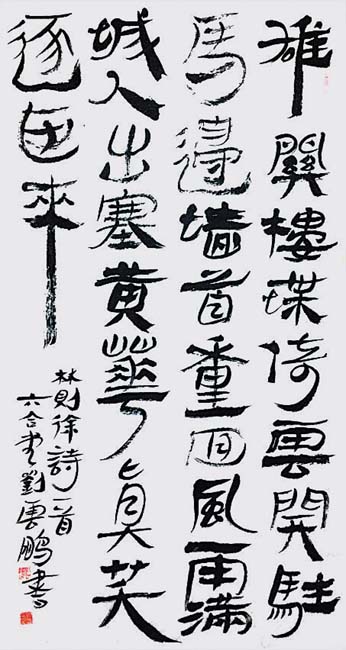 雄關樓堞倚雲開駐
馬邊墻首重回風雨滿
城人出塞黃華真笑
逐臣來
林則徐詩一首
六合劉雲鵬書